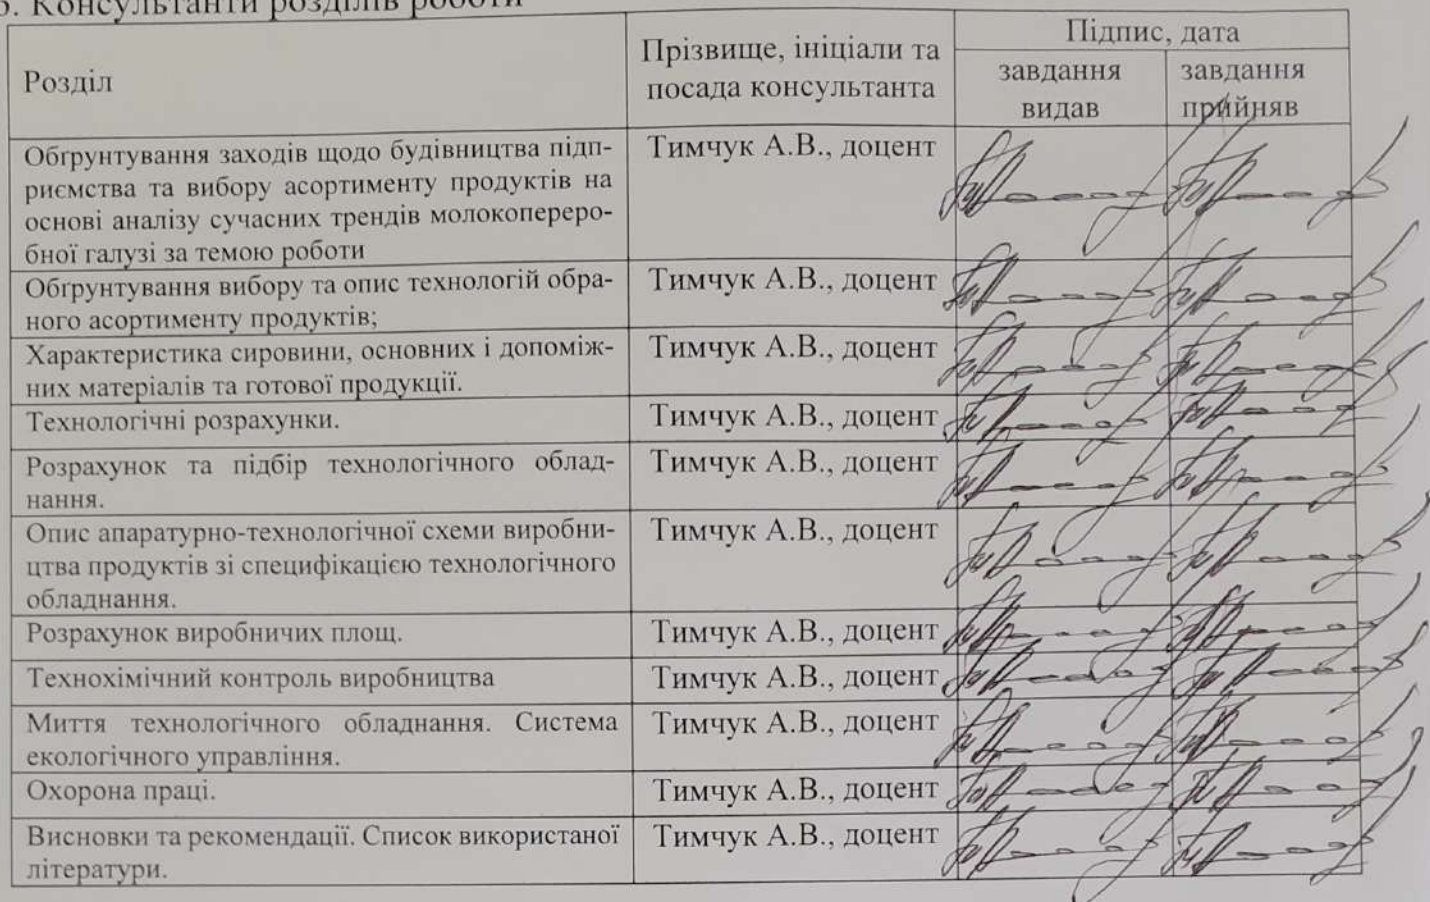 6. Консультанти розділів роботи
Розділ
Прізвище, ініціали та
посада консультанта
Підпис, дата
завдання
видав
завдання
прийняв
Обґрунтування заходів щодо будівництва підп-
риємства та вибору асортименту продуктів на
основі аналізу сучасних трендів молокоперero-
бної галузі за темою роботи
Тимчук А.В., доцент
Обґрунтування вибору та опис технологій обра-
ного асортименту продуктів;
Тимчук А.В., доцент
Характеристика сировини, основних і допоміж-
них матеріалів та готової продукції.
Тимчук А.В., доцент
Технологічні розрахунки.
Тимчук А.В., доцент
Розрахунок та підбір технологічного облад-
нання.
Тимчук А.В., доцент
Опис апаратурно-технологічної схеми виробни-
цтва продуктів зі специфікацією технологічного
обладнання.
Тимчук А.В., доцент
Розрахунок виробничих площ.
Тимчук А.В., доцент
Технохімічний контроль виробництва
Тимчук А.В., доцент
Миття технологічного обладнання. Система
екологічного управління.
Тимчук А.В., доцент
Охорона праці.
Тимчук А.В., доцент
Висновки та рекомендації. Список використаної
літератури.
Тимчук А.В., доцент